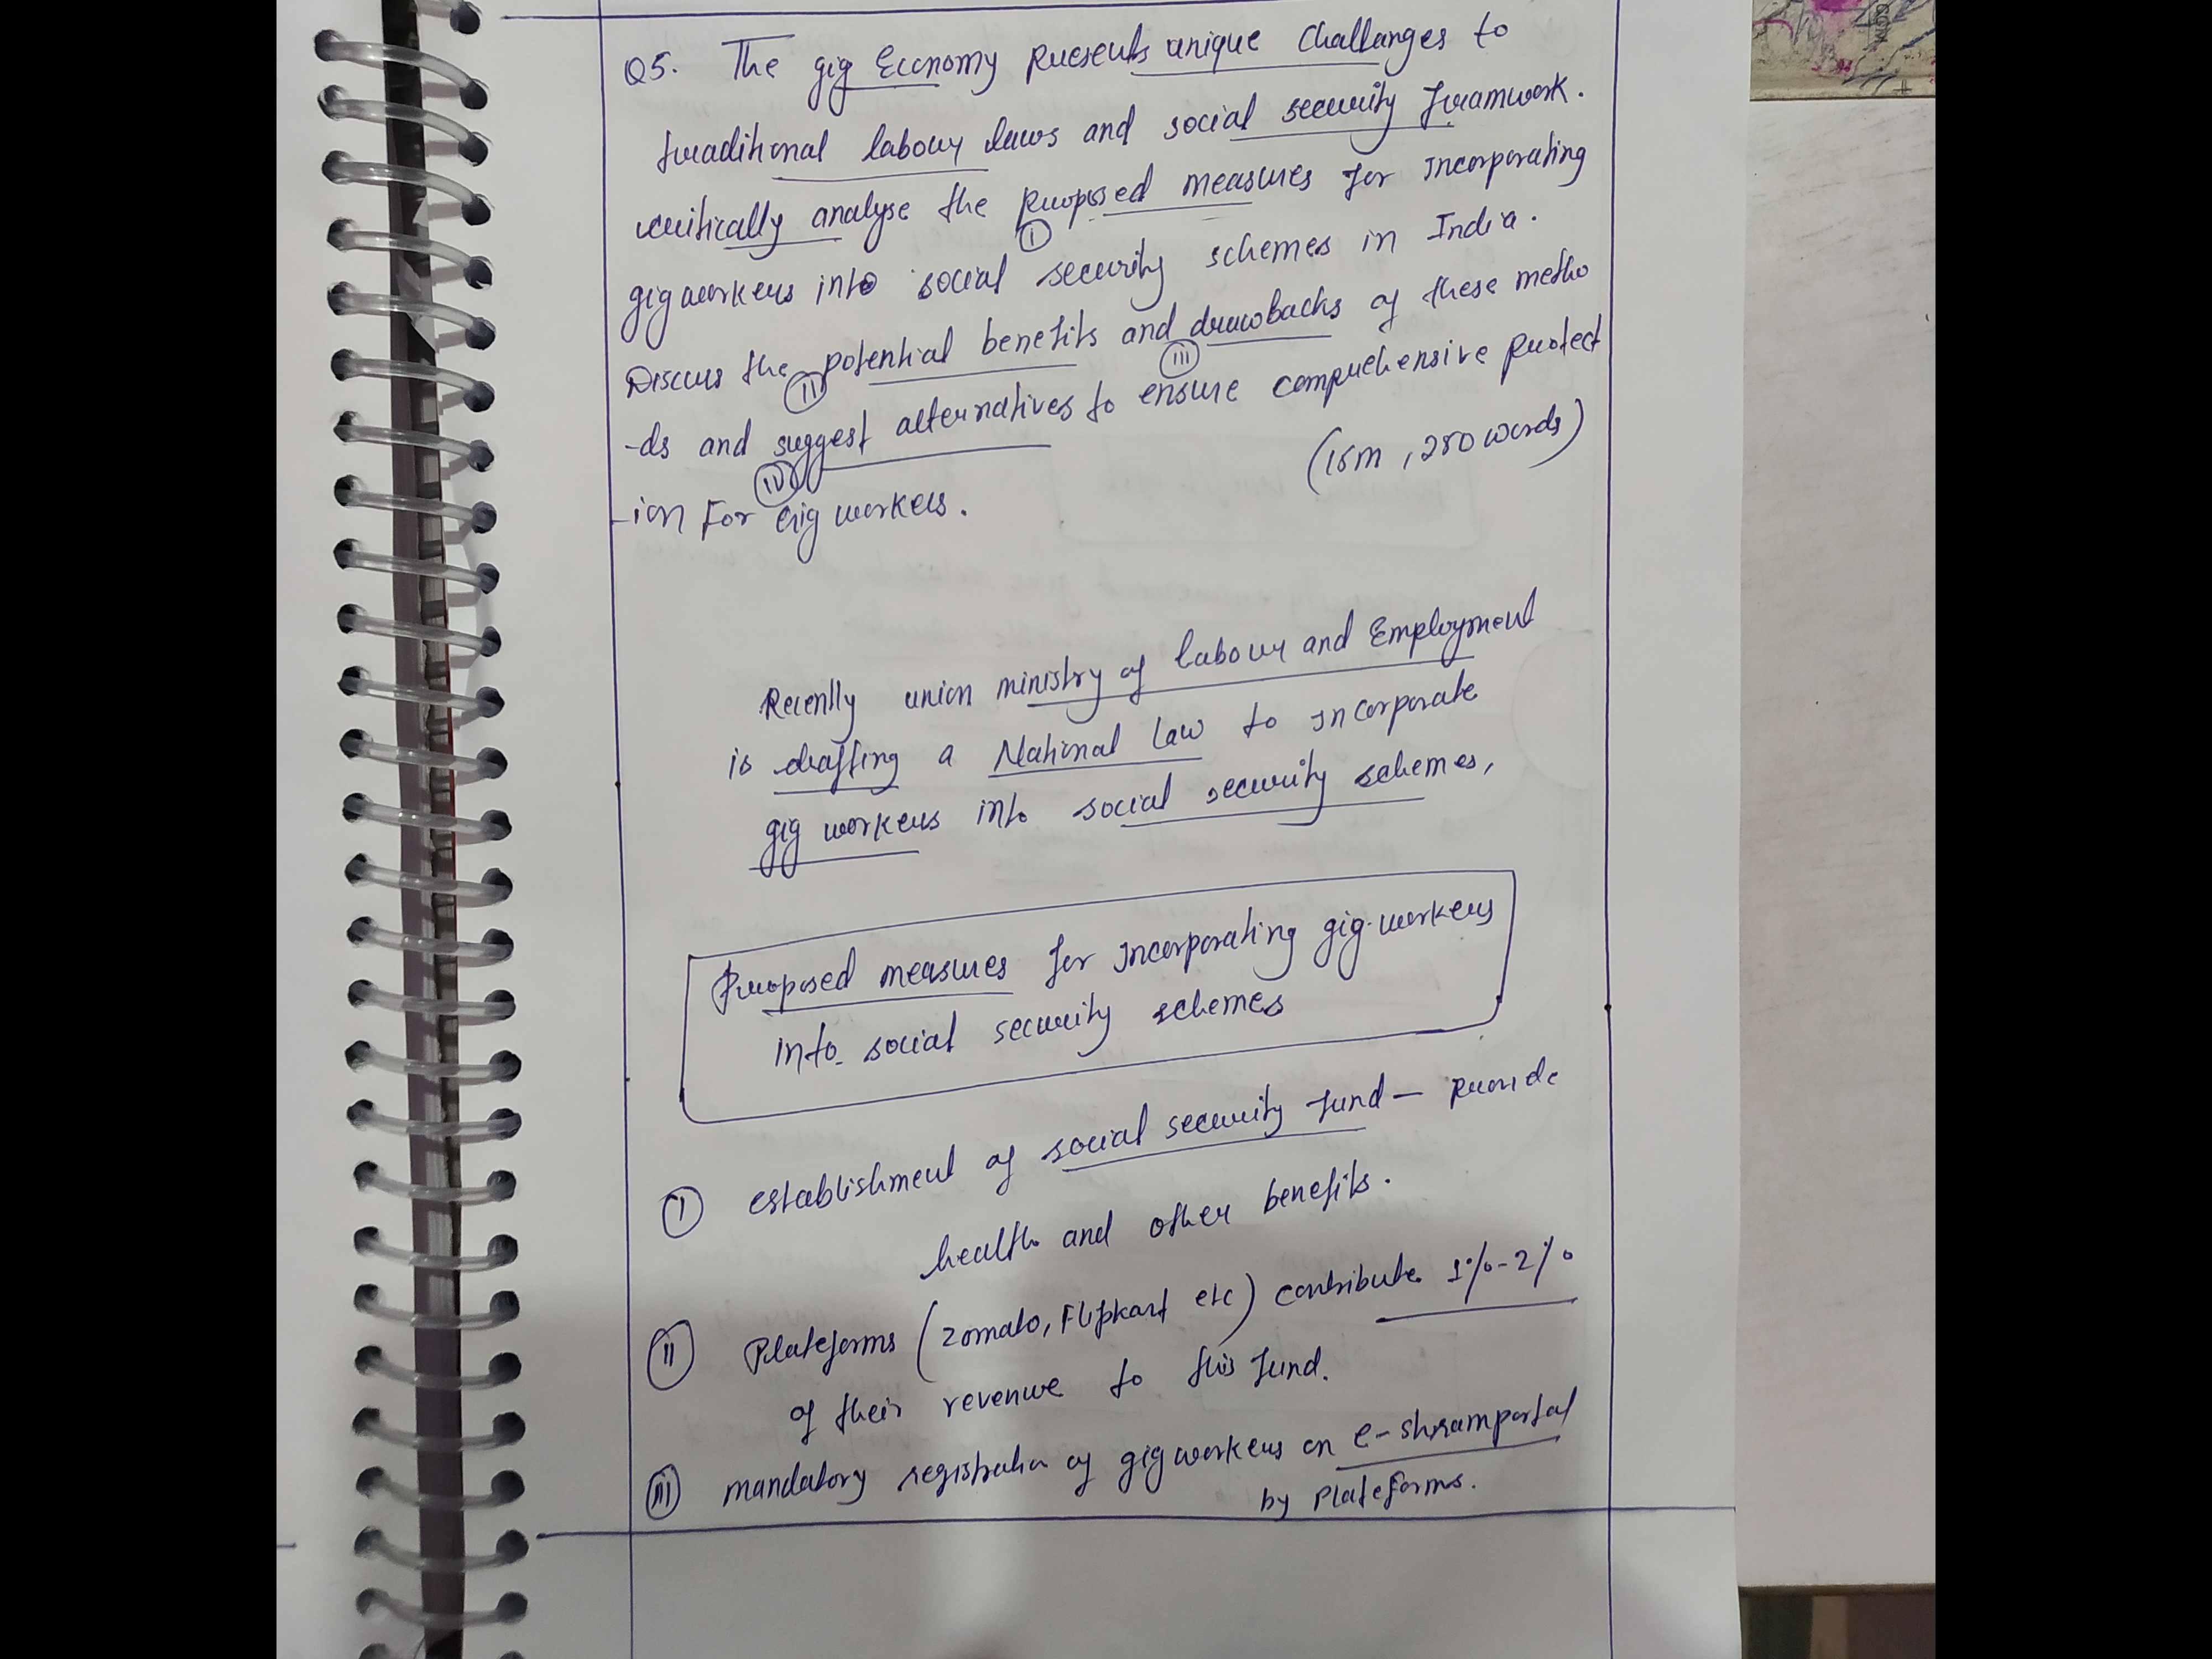 Q5. The gig Economy presents unique Challanges to
traditional labour laws and social security framwork.
critically analyse the proposed measures for Incorporating
I
gig workers into social security schemes in India.
Discuss the potential benefits and drawbacks of these metho
II III
-ds and suggest alternatives to ensure comprehensive protect
IV
-ion For Gig workers. (15m, 250 words)
Recently union ministry of labour and Employment
is drafting a National Law to Incorporate
gig workers into social security schemes,
Proposed measures for Incorporating gig-workers
into social security schemes
I establishment of social security fund - provide
health and other benefits.
II Plateforms (zomato, Flipkart etc) contribute 1%-2%
of their revenue to this fund.
III mandatory registration of gig workers on e-shram portal
by Plateforms.